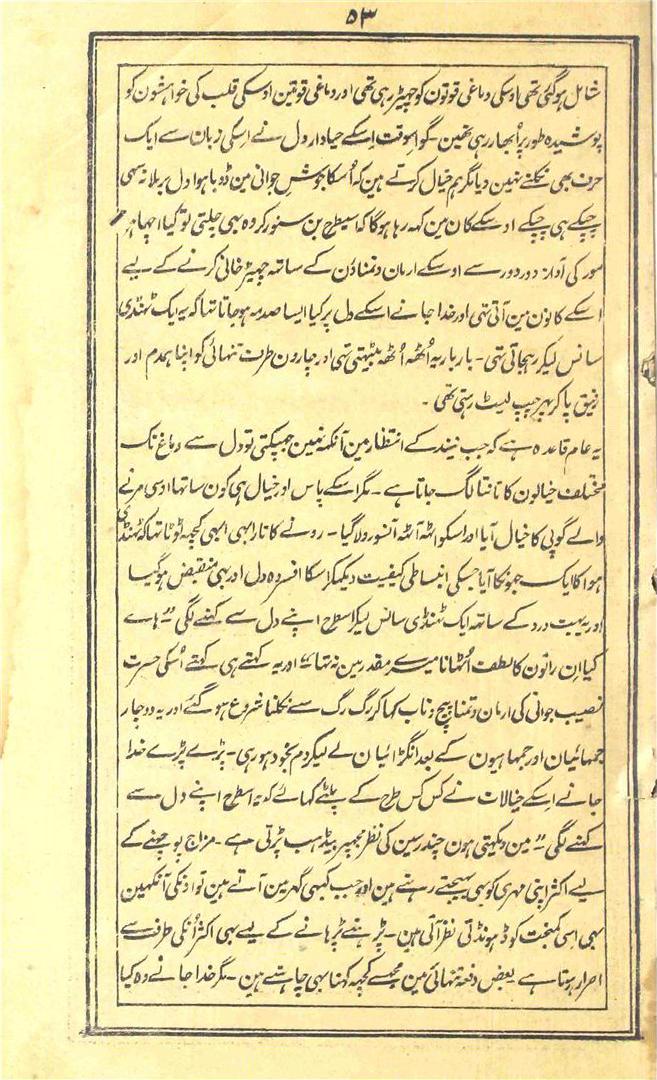 ۵۳
شامل ہوگئی تھی اوسکی دماغی قوتون کو چھیڑ رہی تھی اور دماغی قوتین اوسکی قلب کی خواہشون کو
پوشیدہ طور پر اُبھار رہی تھین۔ گو اسوقت اِسکے حیادار دل نے اِسکی زبان سے ایک
حرف بھی نکلنے نہین دیا مگر ہم خیال کرتے ہین کہ اُسکا جوشِ جوانی مین ڈوبا ہوا دل بر ملا نہ سہی
چپکے ہی چپکے اوسکے کان مین کہہ رہا ہوگا کہ اسیطرح بن سنور کر وہ بہی چلتی تو کیا اچہا
مور کی آواز دور دور سے اوسکے ارمان و تمناؤن کے ساتہ چہیڑ خانی کرنے کے لیے
اسکے کانون مین آتی تہی اور خدا جانے اسکے دل پر کیا ایسا صدمہ ہو جاتا تہا کہ یہ ایک ٹہنڈی
سانس لیکر رہجاتی تہی۔ بار بار یہ اُٹھہ اُٹھہ بیٹہتی تہی اور چارون طرف تنہائی کو اپنا ہمدم اور
رفیق پاکر پہر چپ لیٹ رہتی تھی۔
یہ عام قاعدہ ہے کہ جب نیند کے انتظار مین آنکہہ نہین جہپکتی تو دل سے دماغ تک
مختلف خیالون کا تانتا لگ جاتا ہے۔ مگر اسکے پاس اور خیال ہی کون سا تہا اوسی مرنے
والے گوپی کا خیال آیا اور اسکو اٹھہ اٹھہ آنسو رولا گیا۔ رونے کا تار ابہی ابہی کچہہ ٹوٹا تہا کہ ٹہنڈی
ہوا کا ایک جہونکا آیا جسکی انبساطی کیفیت دیکہکر اسکا افسردہ دل اور بہی منقبض ہو گیا
اور یہ بہت درد کے ساتہ ایک ٹہنڈی سانس لیکر اسطرح اپنے دل سے کہنے لگی "ہاے
کیا اِن راتون کا لطف اُٹہانا میرے مقدر مین نہ تہا" اور یہ کہتے ہی کہتے اُسکی حسرت
نصیب جوانی کی ارمان و تمنا پیچ و تاب کہا کر رگ رگ سے نکلنا شروع ہو گئے اور یہ دو چار
جمہائیان اور جمہاہیون کے بعد انگڑائیان لے لیکر دم بخود ہو رہی۔ پڑے پڑے خدا
جانے اسکے خیالات نے کس کس طرح کے پلٹے کہائے کہ یہ اسطرح اپنے دل سے
کہنے لگی "مین دیکہتی ہون چندر سین کی نظر مجہپر بیڈہب پڑتی ہے۔ مزاج پوچہنے کے
لیے اکثر اپنی مہری کو بہی بہیجتے رہتے ہین اور جب کبہی گہر مین آتے ہین تو اونکی آنکہین
بہی اسی کمبخت کو ڈہونڈتی نظر آتی ہین۔ پڑہنے پڑہانے کے لیے بہی اکثر اُنکی طرف سے
اصرار ہوتا ہے بعض دفعہ تنہائی مین مجہسے کچہہ کہنا بہی چاہتے ہین۔ مگر خدا جانے وہ کیا